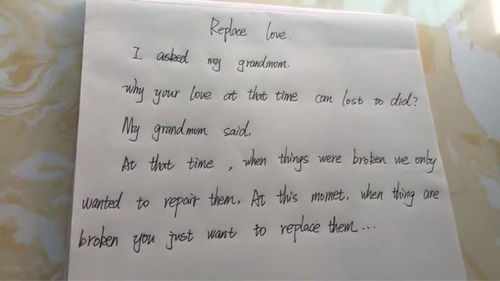 Replace love.
I asked my grandmom
why your love at that time can lost to did?
My grandmom said.
At that time, when things were broken we only
wanted to repair them. At this momet. when thing are
broken you just want to replace them...